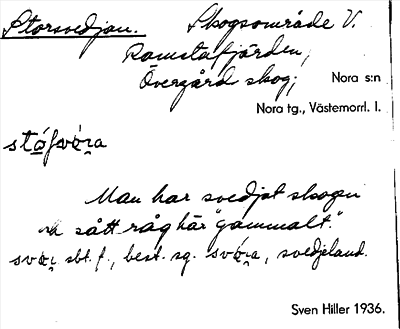 Storsvedjan. Skogsområde V.
Ramstafjärden,
Övergård skog; Nora s:n
Nora tg., Västernorrl. l.
Man har svedjat skogen
sått råg här "gammalt".
sbt. f., best. sg. svedjeland.
Sven Hiller 1936.